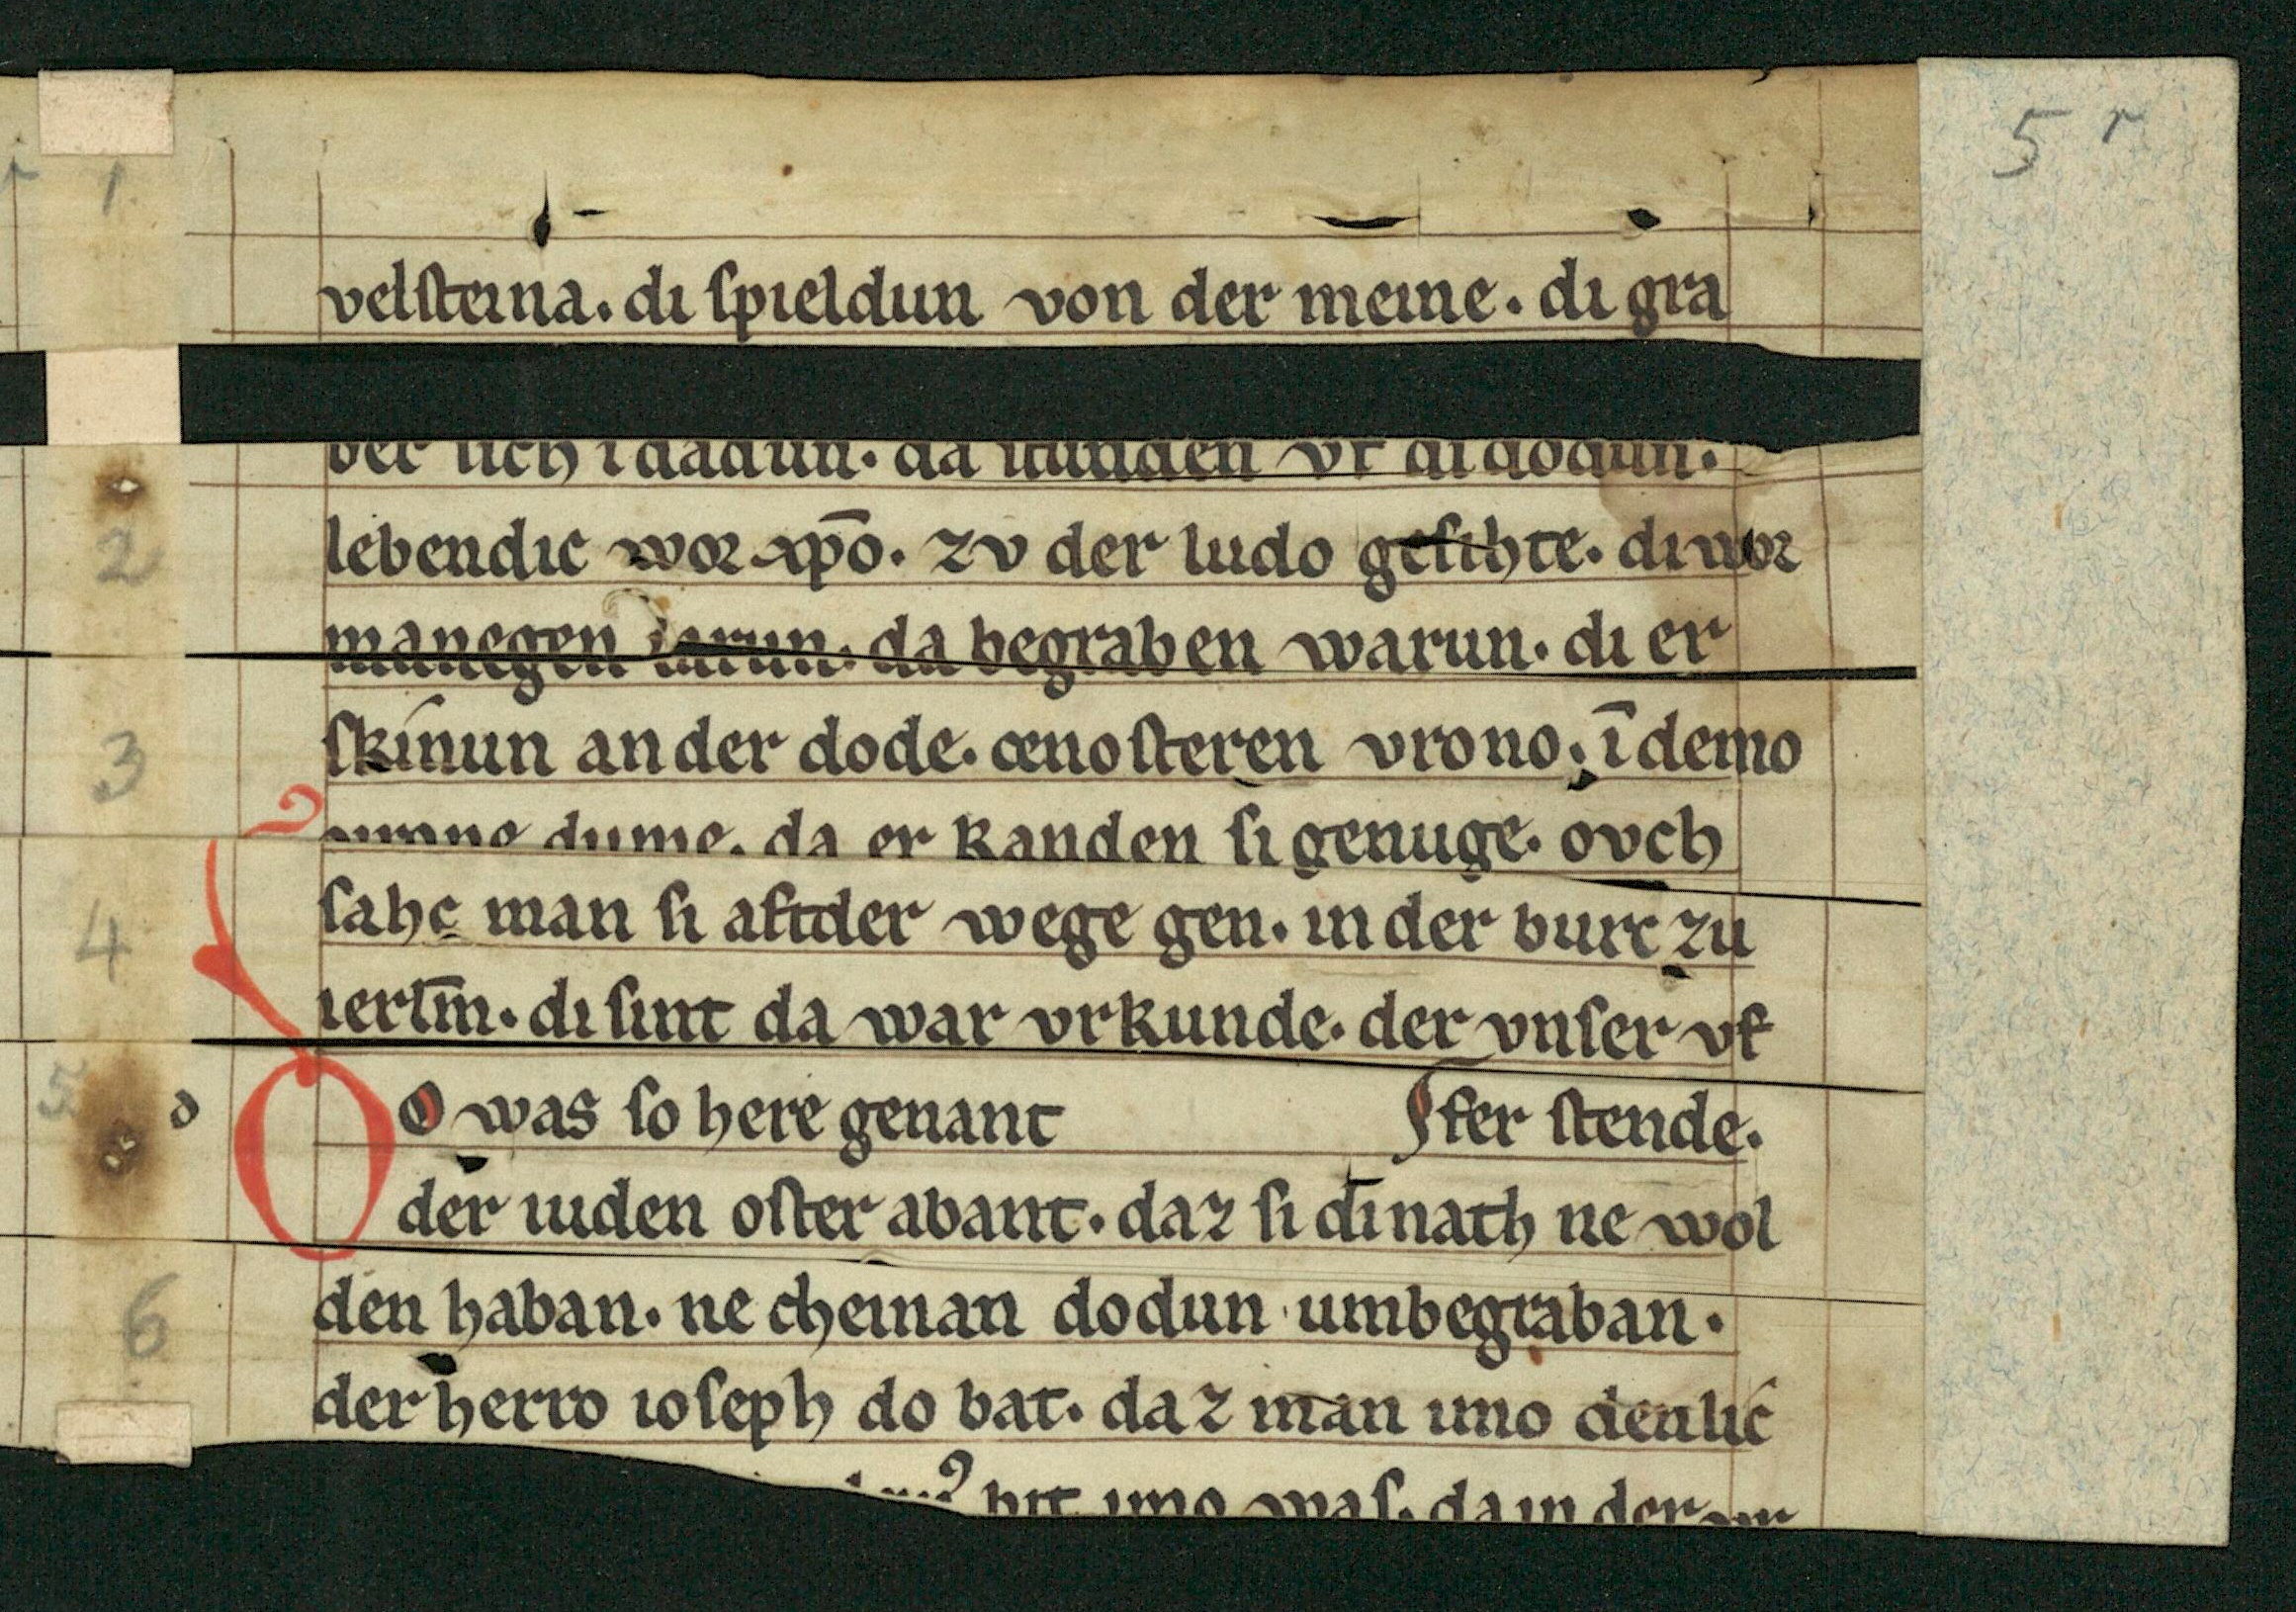 5 r
1
velſteina. di ſpieldun von der meine. di gra
ber ſich idadun. da ſtunden vf di dodun.
2
lebendic vvoꝛ xp̄o. zv der ludo geſihte. di vvoꝛ
manegen iarun. da begraben warun. di er
3
ſkinun an der dode. œnoſteren vrono. ī demo
dume. da er kanden ſi genuge. ovch
4
ſahc man ſi aftder wege gen. in der burc zu
ierłm̄. di ſint da war vrkunde. der vnſer vf
5 d
Do was ſo here genant ſter ſtende.
der iuden oſter abant. daz ſi di nath ne wol
6
den haban. ne cheinan dodun umbegraban.
der herro ioſeph do bat. daz man imo den lic
hit imo waſ. da in der